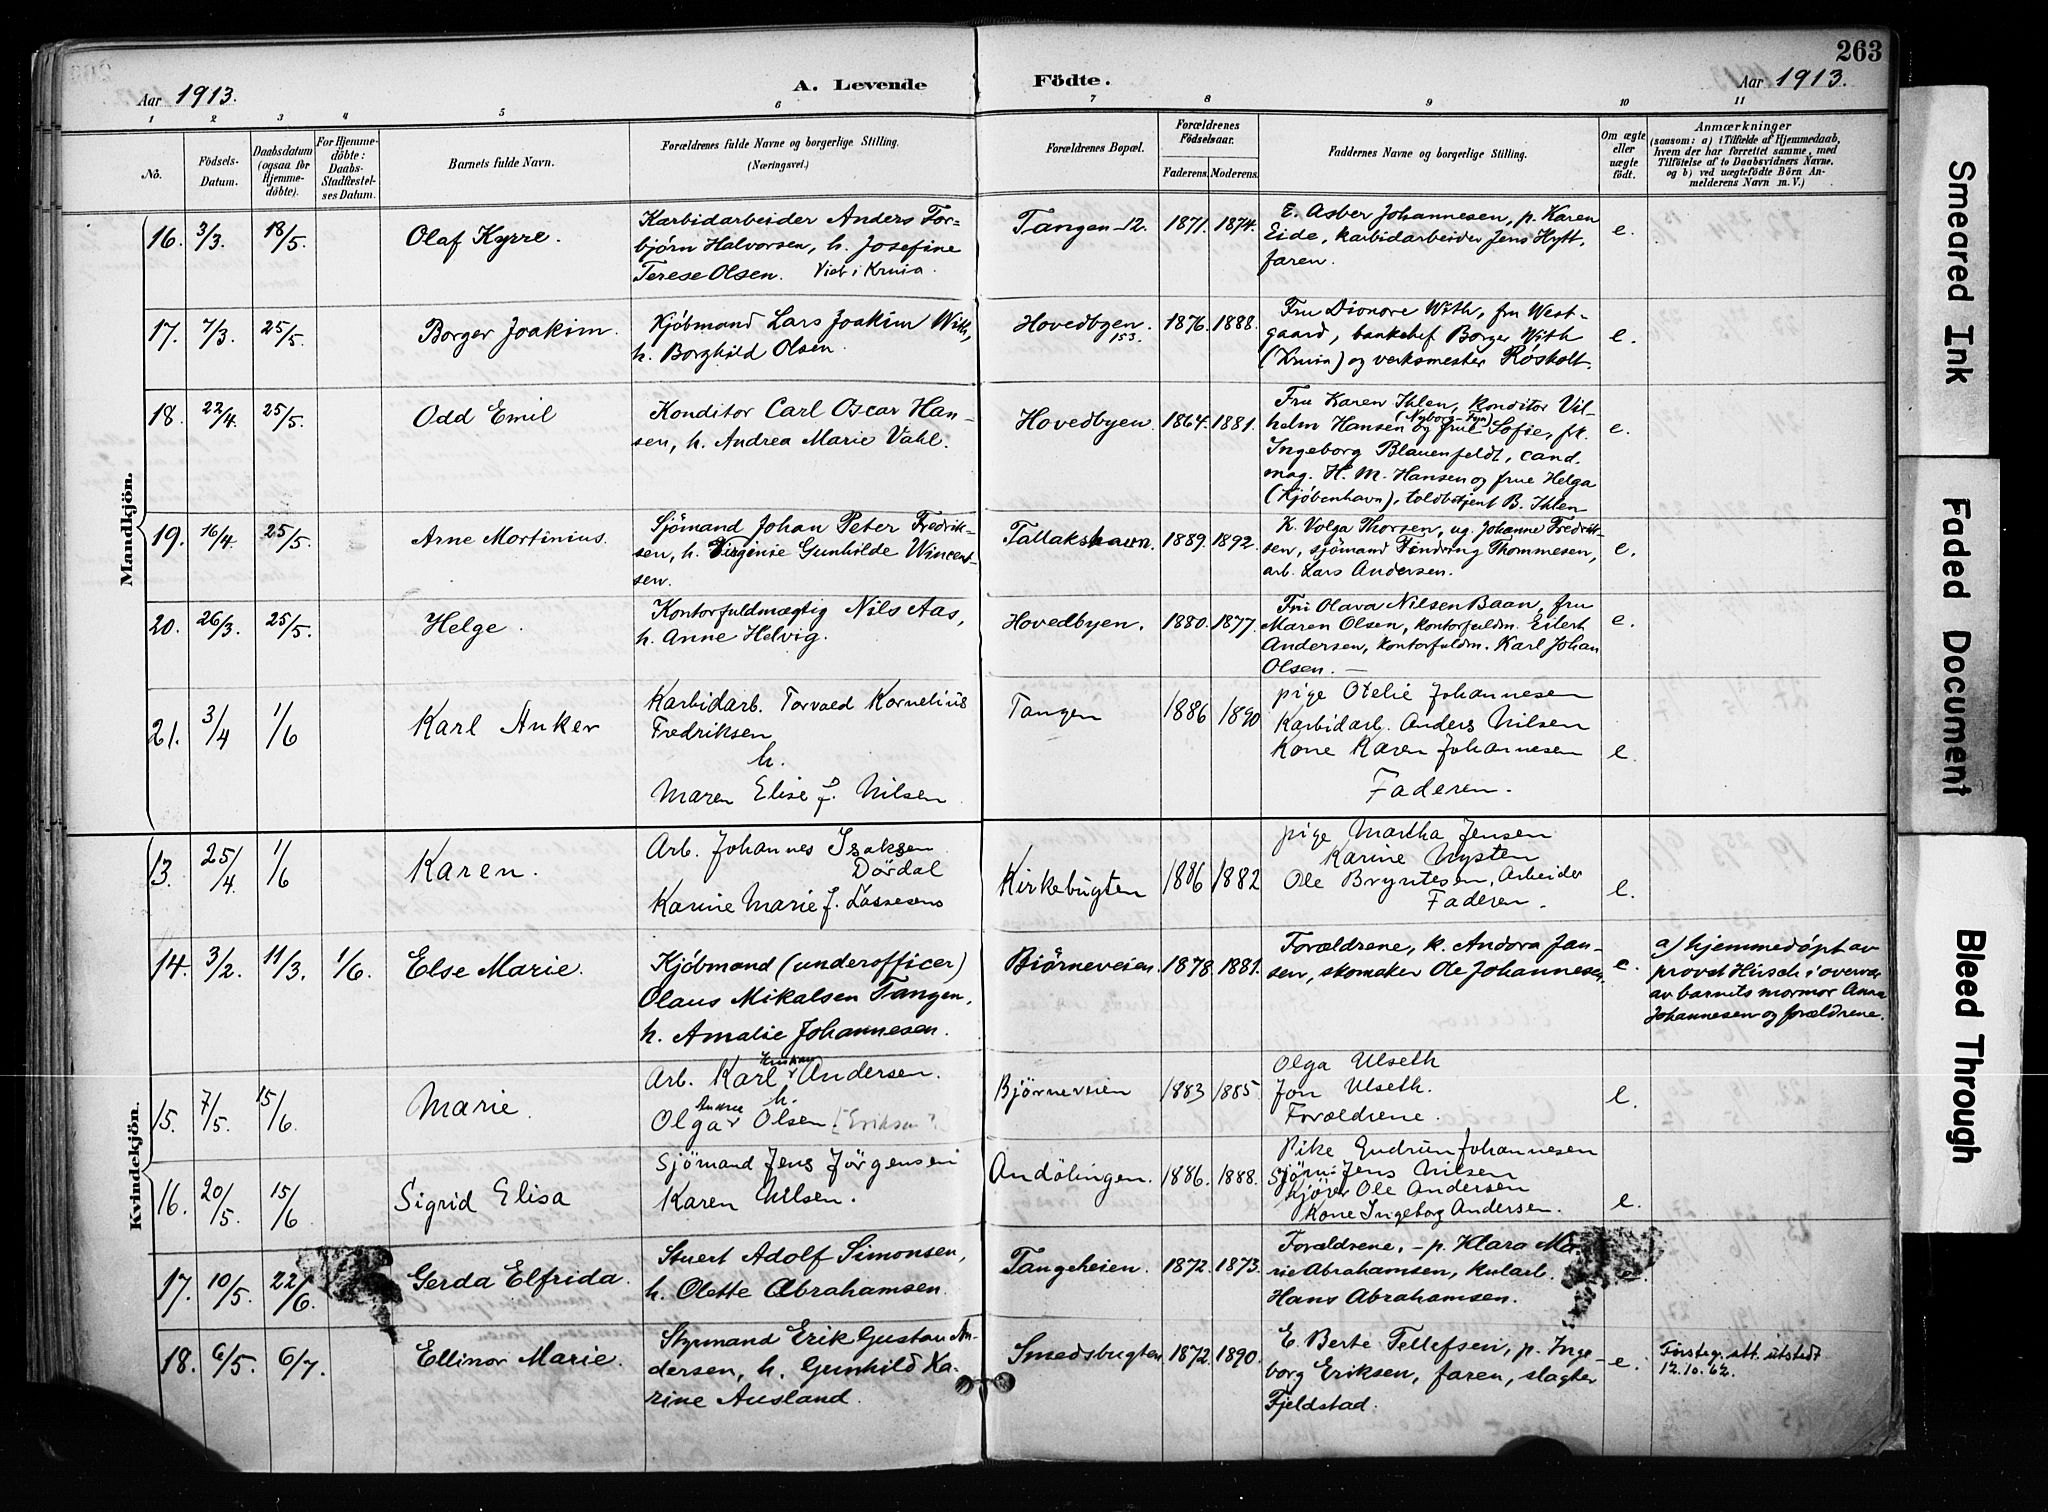 263
Aar 1913.
A. Levende Födte.
Aar 1913.
1 2 3 4 5 6 7 8 9 10 11
No.
Födsels-Datum.
Daabsdatum (ogsaa for Hjemme-döbte).
For Hjemme-döbte: Daabs-Stadfæstel-ses Datum.
Barnets fulde Navn.
Forældrenes fulde Navne og borgerlige Stilling.
(Næringsvei.)
Forældrenes Bopæl.
Forældrenes Födselsaar.
Faderens. Moderens.
Faddernes Navne og borgerlige Stilling.
Om ægte eller uægte födt.
Anmærkninger
(saasom: a) i Tilfælde af Hjemmedaab, hvem der har forrettet samme, med Tilföielse af to Daabsvidners Navne, og b) ved uægtefödte Börn An-melderens Navn m. V.)
Mandkjön.
16. 3/3. 18/5. Olaf Kyrre.
Karbidarbeider Anders Tor-
bjørn Halvorsen, h. Josefine
Terese Olsen. Viet i Kruia.
Tangen 12. 1871. 1874.
E. Asber Johannesen, p. Karen
Eide, karbidarbeider Jens Hytt,
faren.
e.
17. 7/3. 25/5. Borger Joakim.
Kjøbmand Lars Joakim With,
h. Borghild Olsen.
Hovedbyen. 153. 1876. 1888.
Fru Dionore With, fru West-
gaard, bankchef Borger With
(Kruia) og verksmester Røsholt.
e.
18. 22/4. 25/5. Odd Emil
Konditor Carl Oscar Han-
sen, h. Andrea Marie Vahl.
Hovedbyen 1864. 1881.
Fru Karen Ihlen, konditor Vil-
helm Hansen (Nyborg-Fyn) og frue Sofie, frk.
Ingeborg Blauenfeldt, cand.
mag. H. M. Hansen og frue Helga
(Kjøbenhavn), toldbetjent B. Ihlen
e.
19. 16/4. 25/5. Arne Mortinius.
Sjömand Johan Peter Fredrik-
sen, h. Virginie Gunhilde Wincent-
sen.
Tallakshavn. 1889. 1892.
K. Volga Thorsen, ug. Johanne Fredrik-
sen, sjömand Findring Thommesen,
arb. Lars Andersen.
e.
20. 26/3. 25/5. Helge.
Kontorfuldmægtig Nils Aas,
h. Anne Helvig.
Hovedbyen. 1880. 1877.
Fru Olava Nilsen Baan, fru
Maren Olsen, kontorfuldm. Eilert
Andersen, kontorfuldm. Karl Johan
Olsen. —
e.
21. 3/4 1/6 Karl Anker
Karbidarb. Torvald Kornelius
Fredriksen
h.
Maren Elise f. Nilsen
Tangen 1886 1890
pige Otelie Johannesen
Karbidarb. Anders Nilsen
Kone Karen Johannesen
Faderen.
e.
Kvindekjön.
13. 25/4 1/6 Karen.
Arb. Johannes Isaksen
Dördal
Karine Marie f. Lassesens
Kirkebugten 1886 1882
pige Martha Jensen
Karine Nysten
Ole Bryntesen, Arbeider
Faderen.
e.
14. 3/2. 11/3. 1/6. Else Marie.
Kjøbmand (underofficer)
Olaus Mikalsen Tangen,
h. Amalie Johannesen.
Biörneveien 1878. 1881.
Forældrene, k. Andora Jan-
sen, skomaker Ole Johannesen.
e.
a) hjemmedøpt av
provst Hirsch i overvær
av barnets mormor Anna
Johannesen og forældrene.
15. 7/5. 15/6 Marie.
Arb. Karl Andersen.
h.
Olga Andrea Olsen [Eriksen?]
Björneveien 1883 1885
Olga Ulseth
Jon Ulseth.
Forældrene.
e.
16. 20/5. 15/6 Sigrid Elisa
Sjömand Jens Jörgensen
Karen Nilsen.
Andölingen. 1886. 1888.
Pike Gudrun Johannesen
Sjöm. Jens Nilsen
Kjörer Ole Andersen
Kone Ingeborg Andersen.
e.
17. 10/5. 22/6. Gerda Elfrida.
Stuert Adolf Simonsen,
h. Olette Abrahamsen.
Tangeheien. 1872. 1873.
Forældrene, – p. Klara Ma-
rie Abrahamsen, kularb.
Hans Abrahamsen.
e.
18. 6/5. 6/7. Ellinor Marie.
Styrmand Erik Gustav An-
dersen, h. Gunhild Ka-
rine Ausland.
Smedsbugten 1872. 1890.
E. Berte Tellefsen, p. Inge-
borg Eriksen, faren, slagter
Fjeldstad.
e.
Förstegr. att. utstedt
12.10.62.
Smeared Ink
Faded Document
Bleed Through